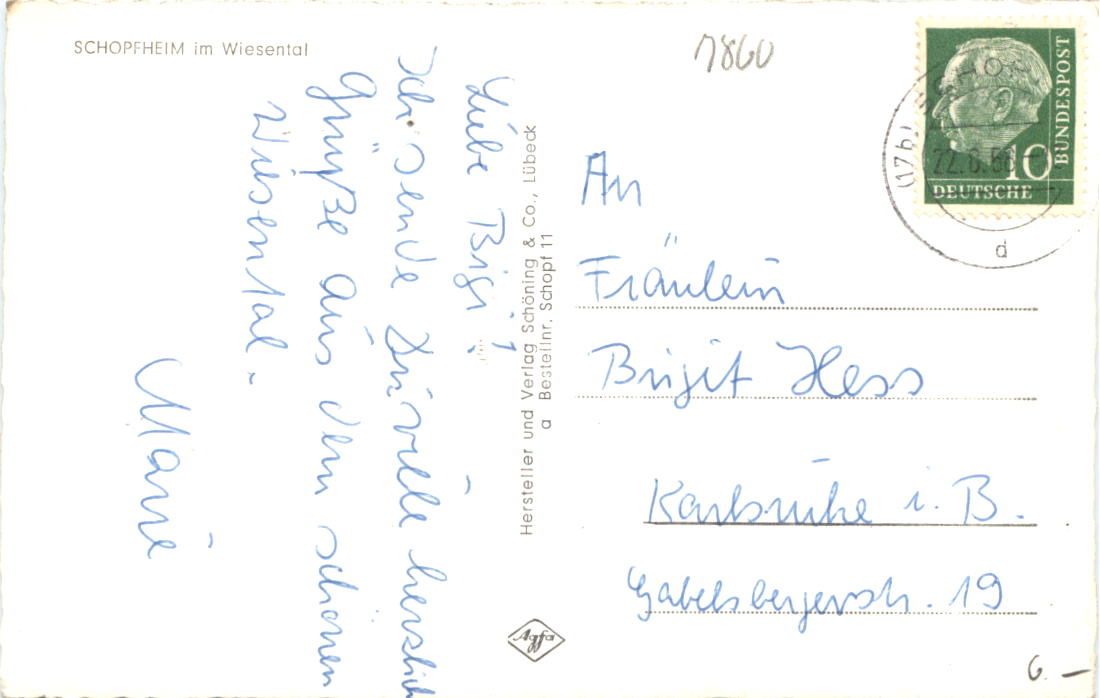 SCHOPFHEIM im Wiesental
7860
Liebe Bigi!
Ich sende Dir viele herzlich
Grüße aus dem schönen
Wiesental.
Marie
Hersteller und Verlag Schöning & Co., Lübeck
a Bestellnr. Schopf 11
Agfa
BUNDESPOST
10
DEUTSCHE
(17b) SCHOPF
22.6.56
d
An
Fräulein
Birgit Hess
Karlsruhe i. B.
Gabelsbergerstr. 19
6.–